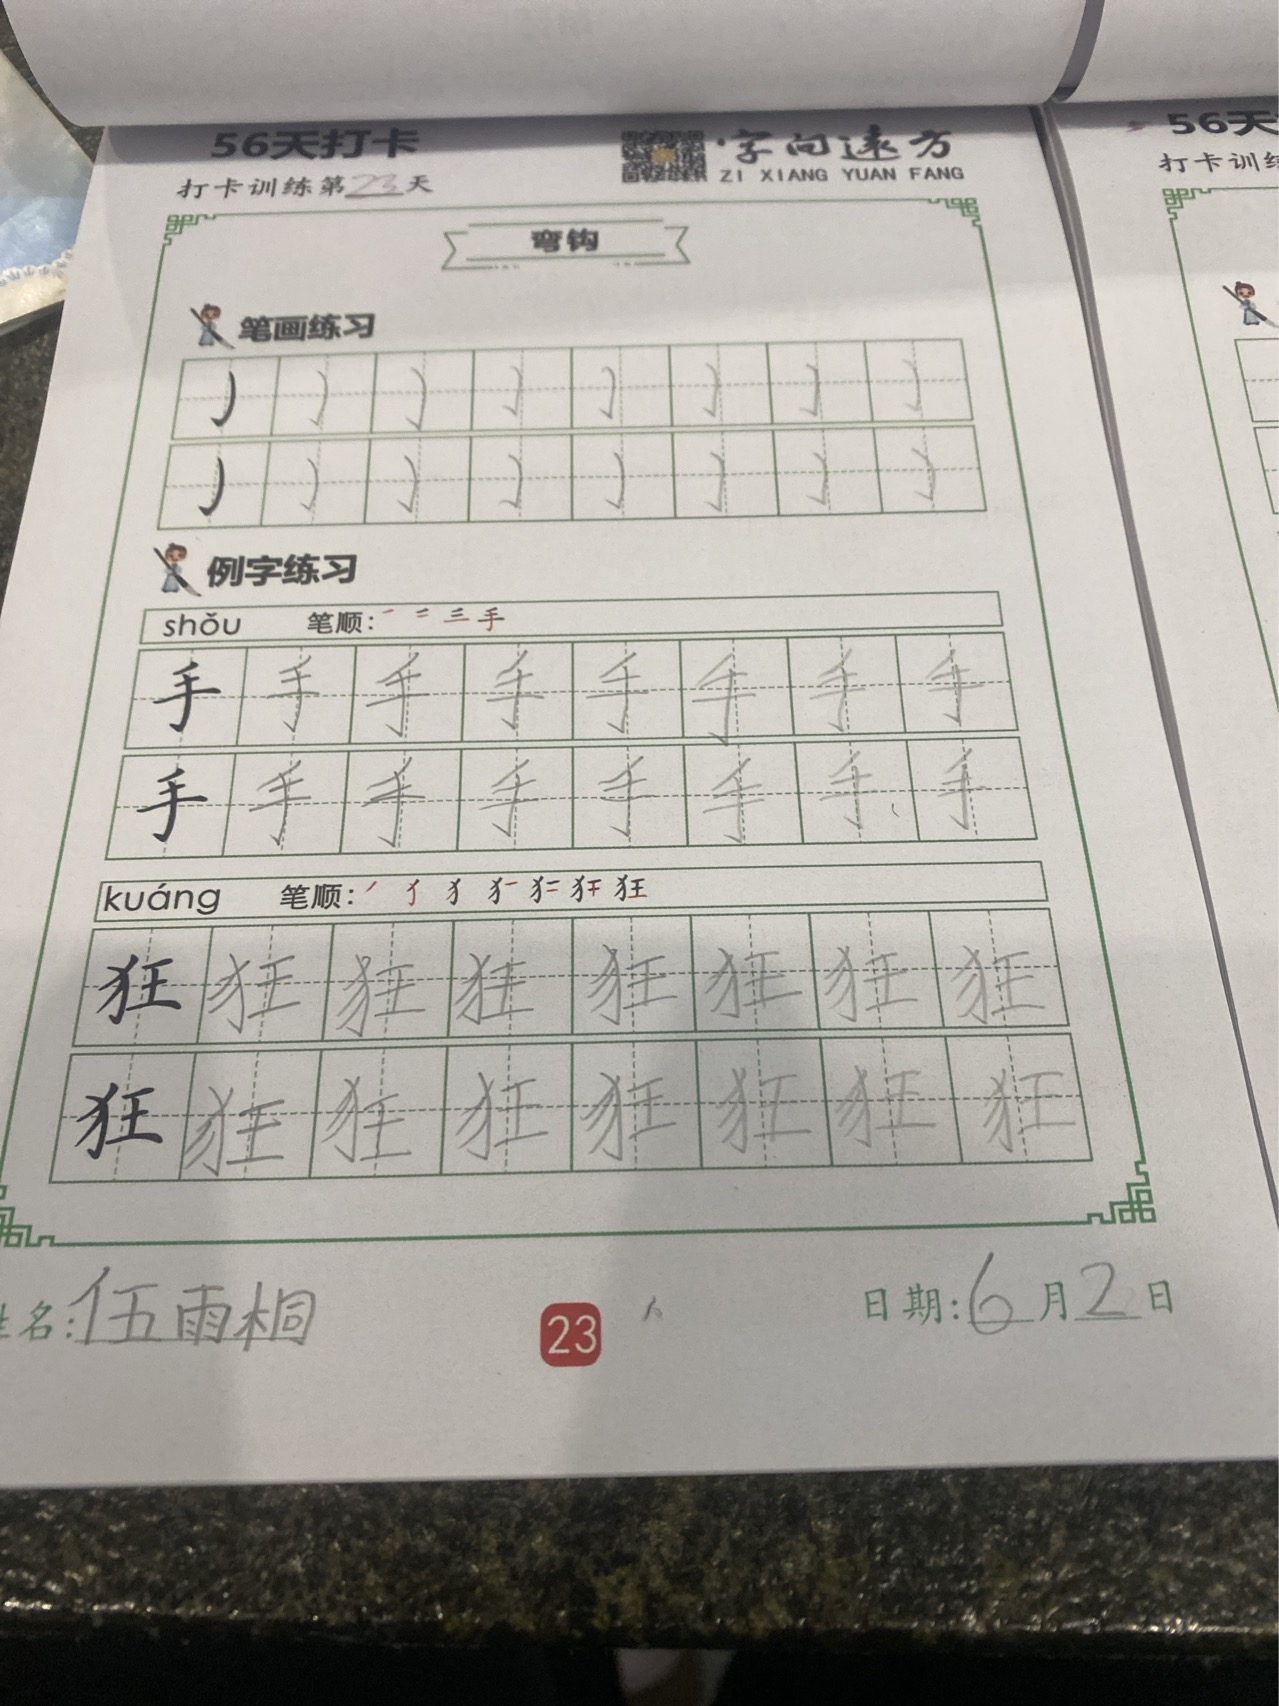 56天打卡
字向远方
ZI XIANG YUAN FANG
打卡训练第23天
弯钩
笔画练习
例字练习
shǒu 笔顺: 一 二 三 手
手 手 手 手 手 手 手 手
手 手 手 手 手 手 手 手
kuáng 笔顺: 狂
狂 狂 狂 狂 狂 狂 狂 狂
狂 狂 狂 狂 狂 狂 狂 狂
姓名: 伍雨桐
23
日期: 6月2日
56天
打卡训练